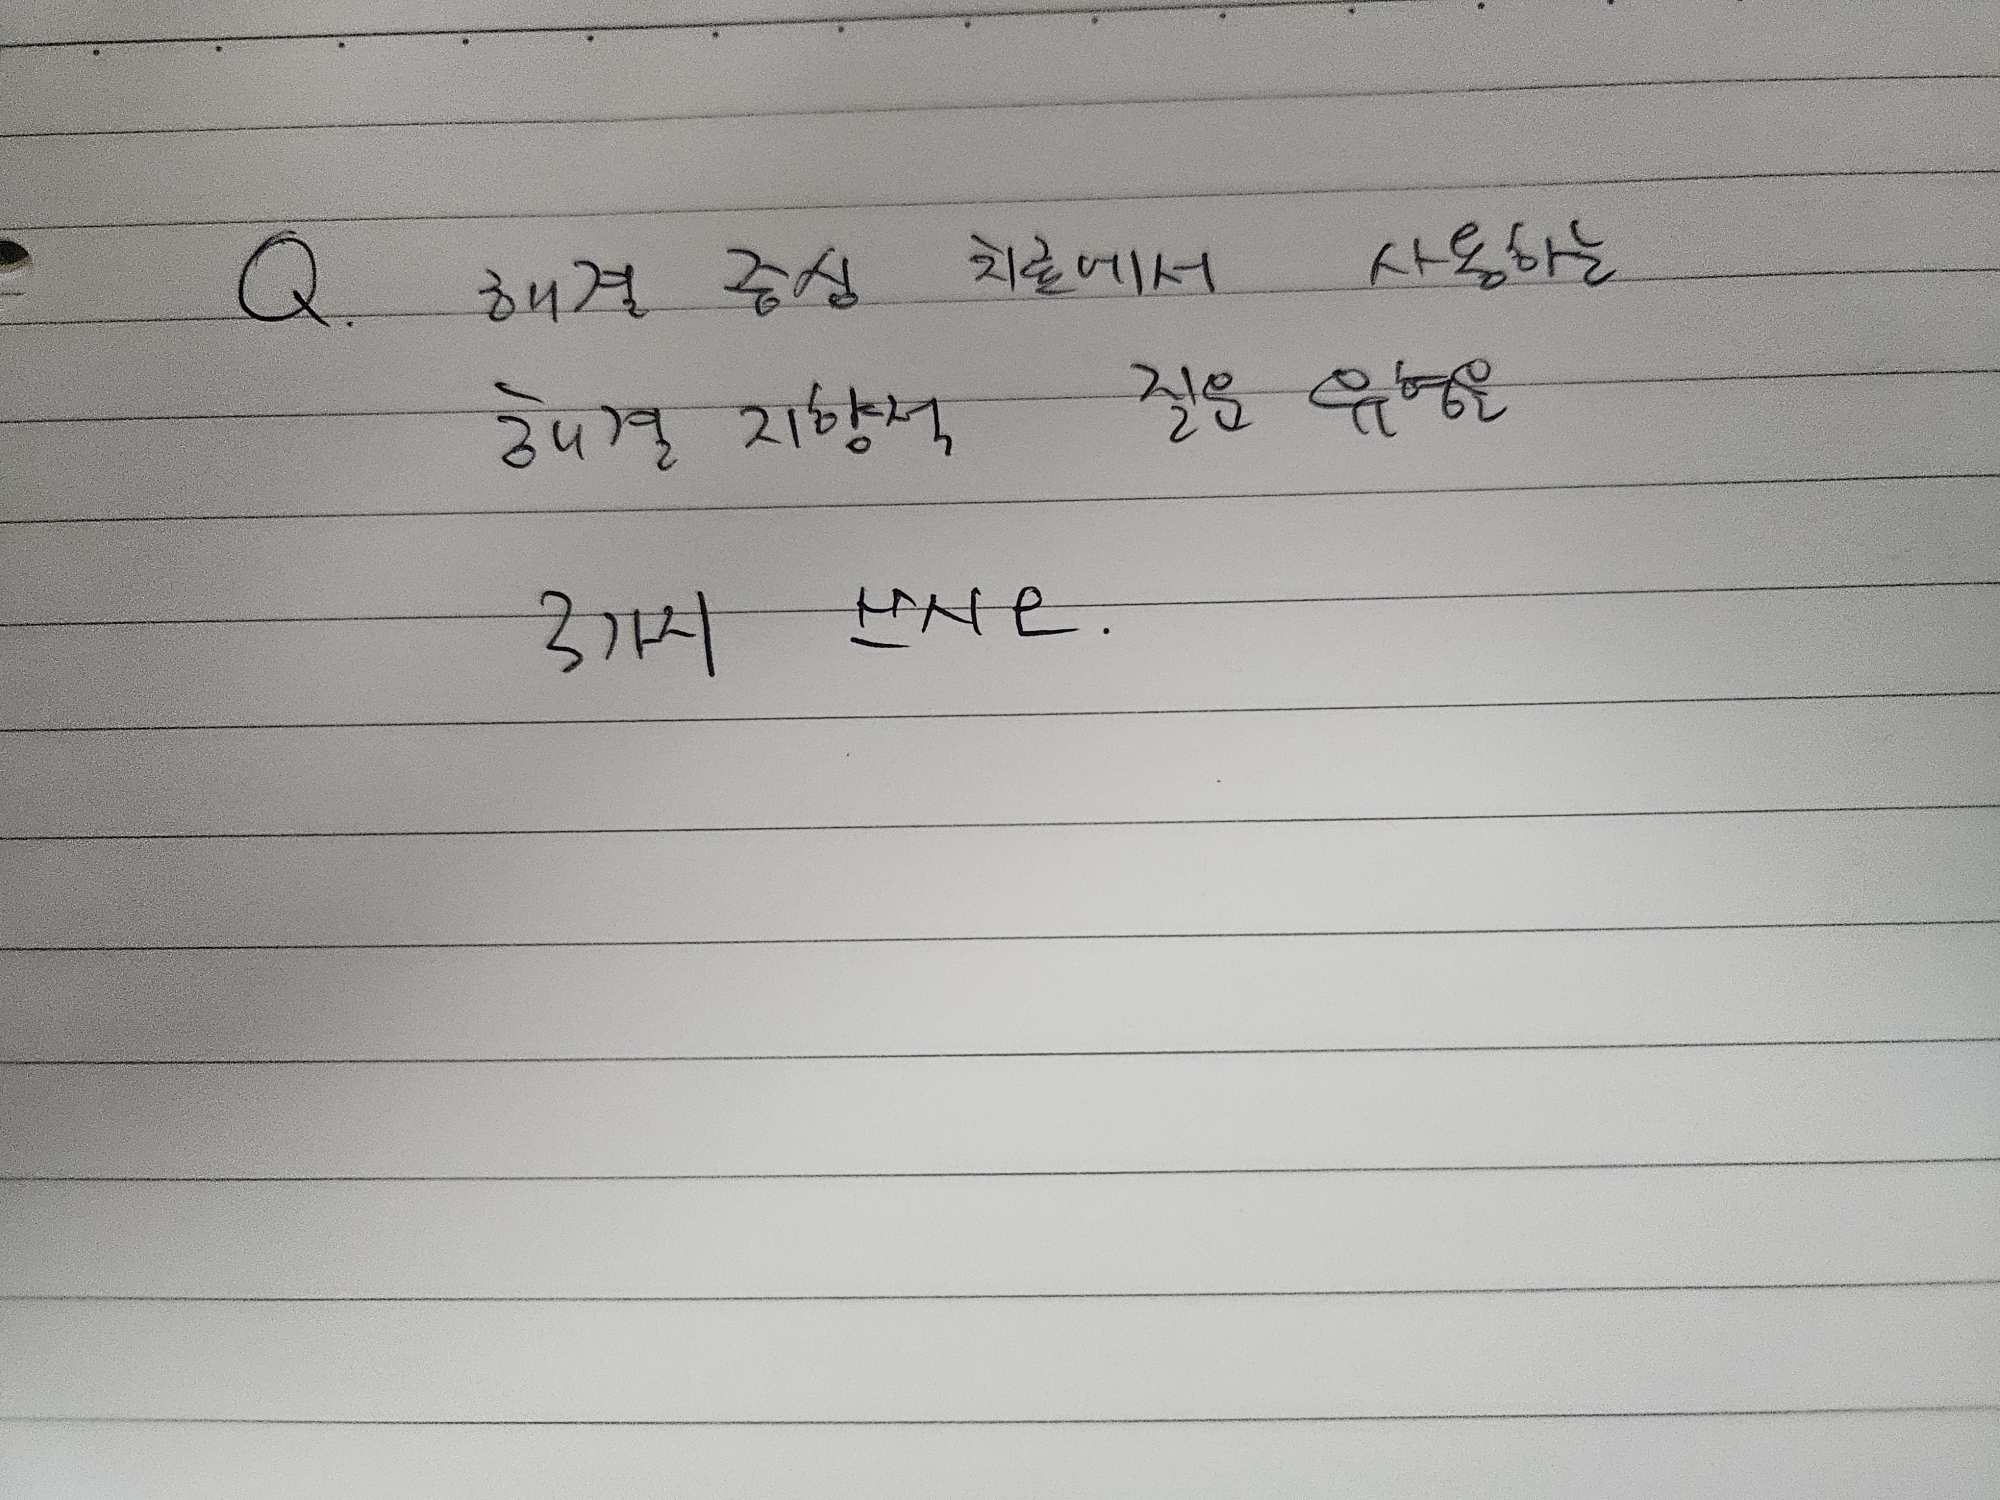 Q. 해결 중심 치료에서 사용하는
해결 지향적 질문 유형을
3가지 쓰시오.